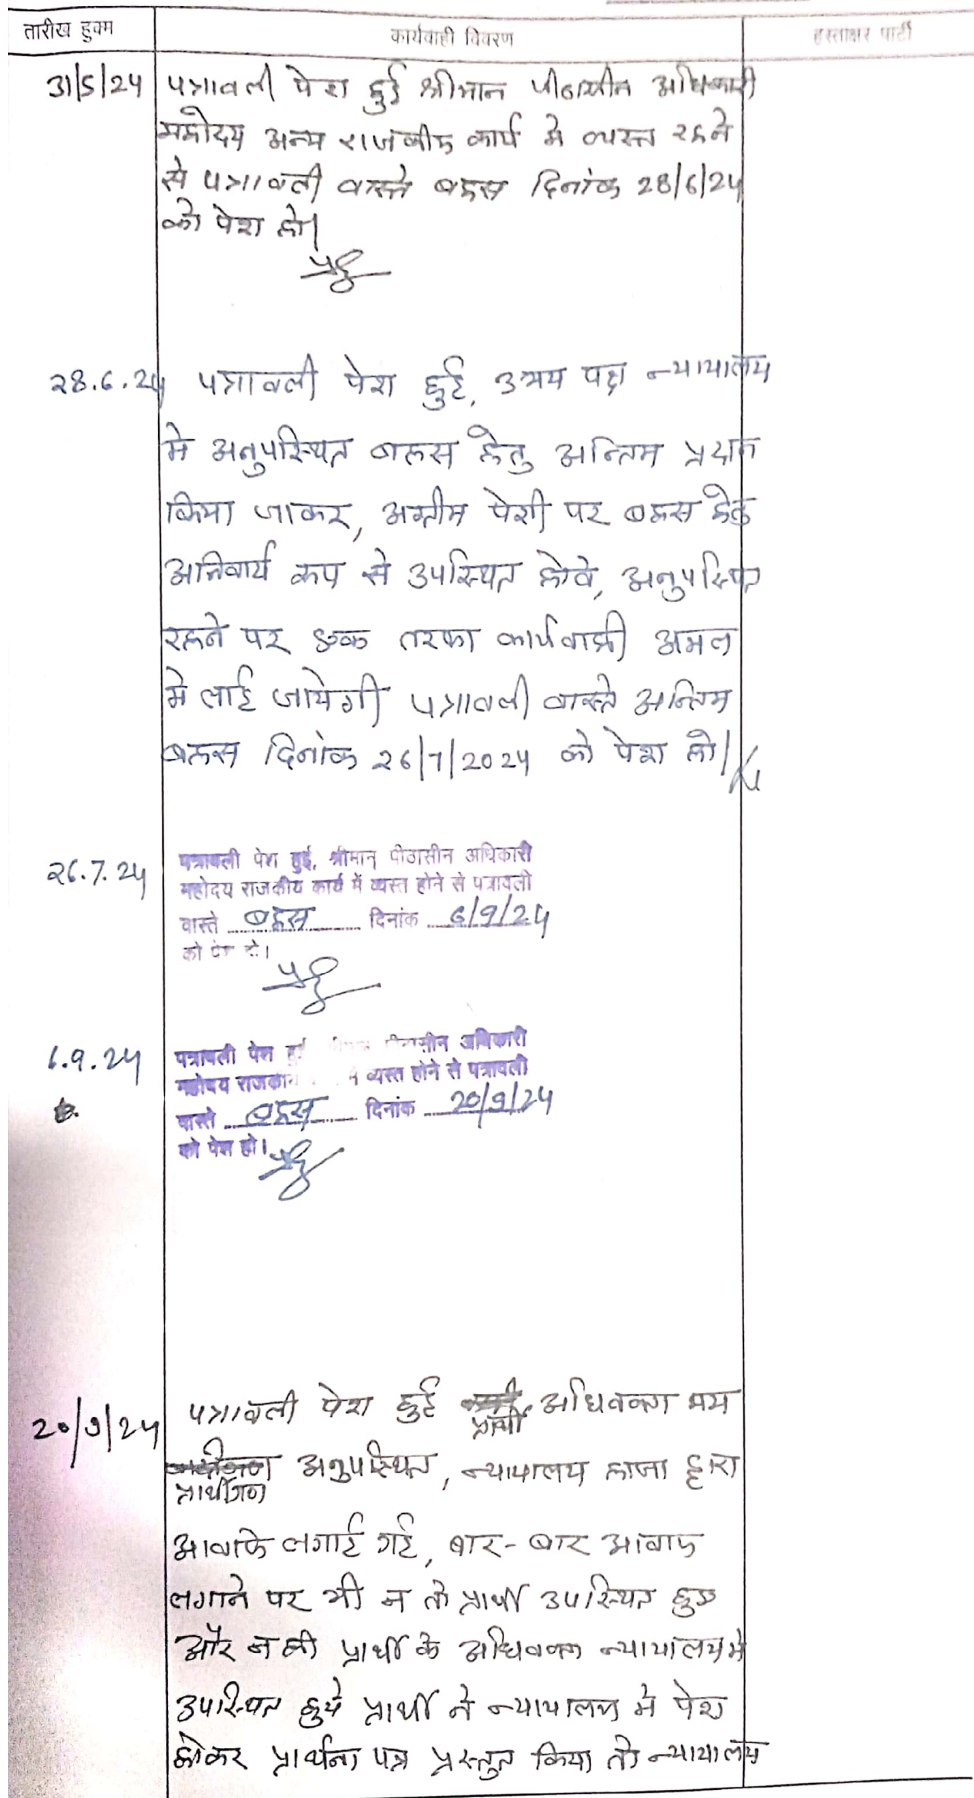 तारीख हुक्म
कार्यवाही विवरण
हस्ताक्षर पार्टी
31/5/24
पत्रावली पेश हुई श्रीमान पीठासीन अधिकारी
महोदय अन्य राजकीय कार्य मे व्यस्त रहने
से पत्रावली वास्ते बहस दिनांक 28/6/24
को पेश हो।
28.6.24
पत्रावली पेश हुई, उभय पक्ष न्यायालय
मे अनुपस्थित बहस हेतु अन्तिम
किया जाकर, अग्रीम पेशी पर बहस हेतु
अनिवार्य रूप से उपस्थित होवे, अनुपस्थित
रहने पर एक तरफा कार्यवाही अमल
मे लाई जायेगी पत्रावली वास्ते अन्तिम
बहस दिनांक 26/7/2024 को पेश हो।
26.7.24
पत्रावली पेश हुई, श्रीमान् पीठासीन अधिकारी
महोदय राजकीय कार्य में व्यस्त होने से पत्रावली
वास्ते बहस दिनांक 6/9/24
को पेश हो।
6.9.24
पत्रावली पेश हुई पीठासीन अधिकारी
महोदय व्यस्त होने से पत्रावली
वास्ते बहस दिनांक 20/9/24
को पेश हो।
20/9/24
पत्रावली पेश हुई प्रार्थी अधिवक्ता मय
प्रार्थीगण अनुपस्थित, न्यायालय द्वारा
आवाजे लगाई गई, बार-बार आवाज
लगाने पर भी न तो प्रार्थी उपस्थित हुए
और न ही प्रार्थी के अधिवक्ता न्यायालय मे
उपस्थित हुये प्रार्थी ने न्यायालय मे पेश
होकर प्रार्थना पत्र प्रस्तुत किया तो न्यायालय